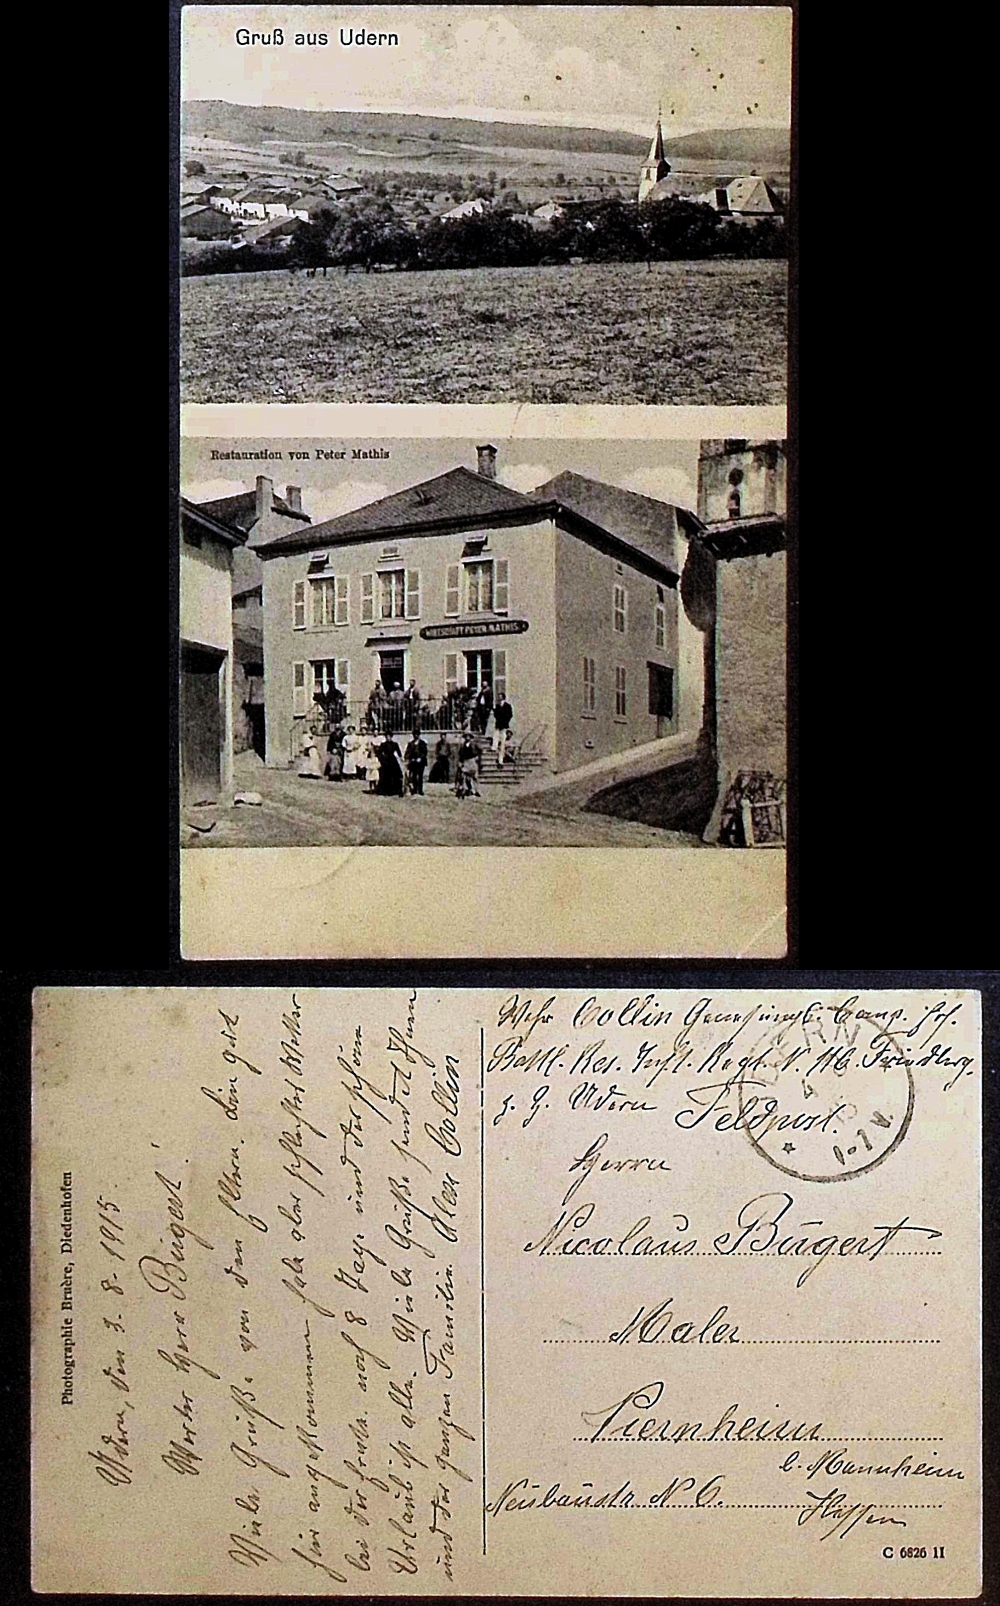 Gruß aus Udern
Restauration von Peter Mathis
WIRTSCHAFT PETER MATHIS
Photographie Bruère, Diedenhofen
Udern, den 3. 8. 1915.
Werter Herr Bügert!
Viele Grüße von den Eltern. Bin gut
hir angekommen habe aber schlechtes Wetter
bei der Ernte noch 8 Tage und der schöne
Urlaub ist alle. Viele Grüße sendet Ihnen
und der ganzen Familie Alex Collin
Wehr Collin Genesungs. Comp. Ers.
Battl. Res. Inft. Regt. N. 116 Friedberg.
z. Z. Udern Feldpost.
Herrn
Nicolaus Bügert
Maler
Viernheim
b. Mannheim
Neubaustr N 6.
Hessen
C 6826 11